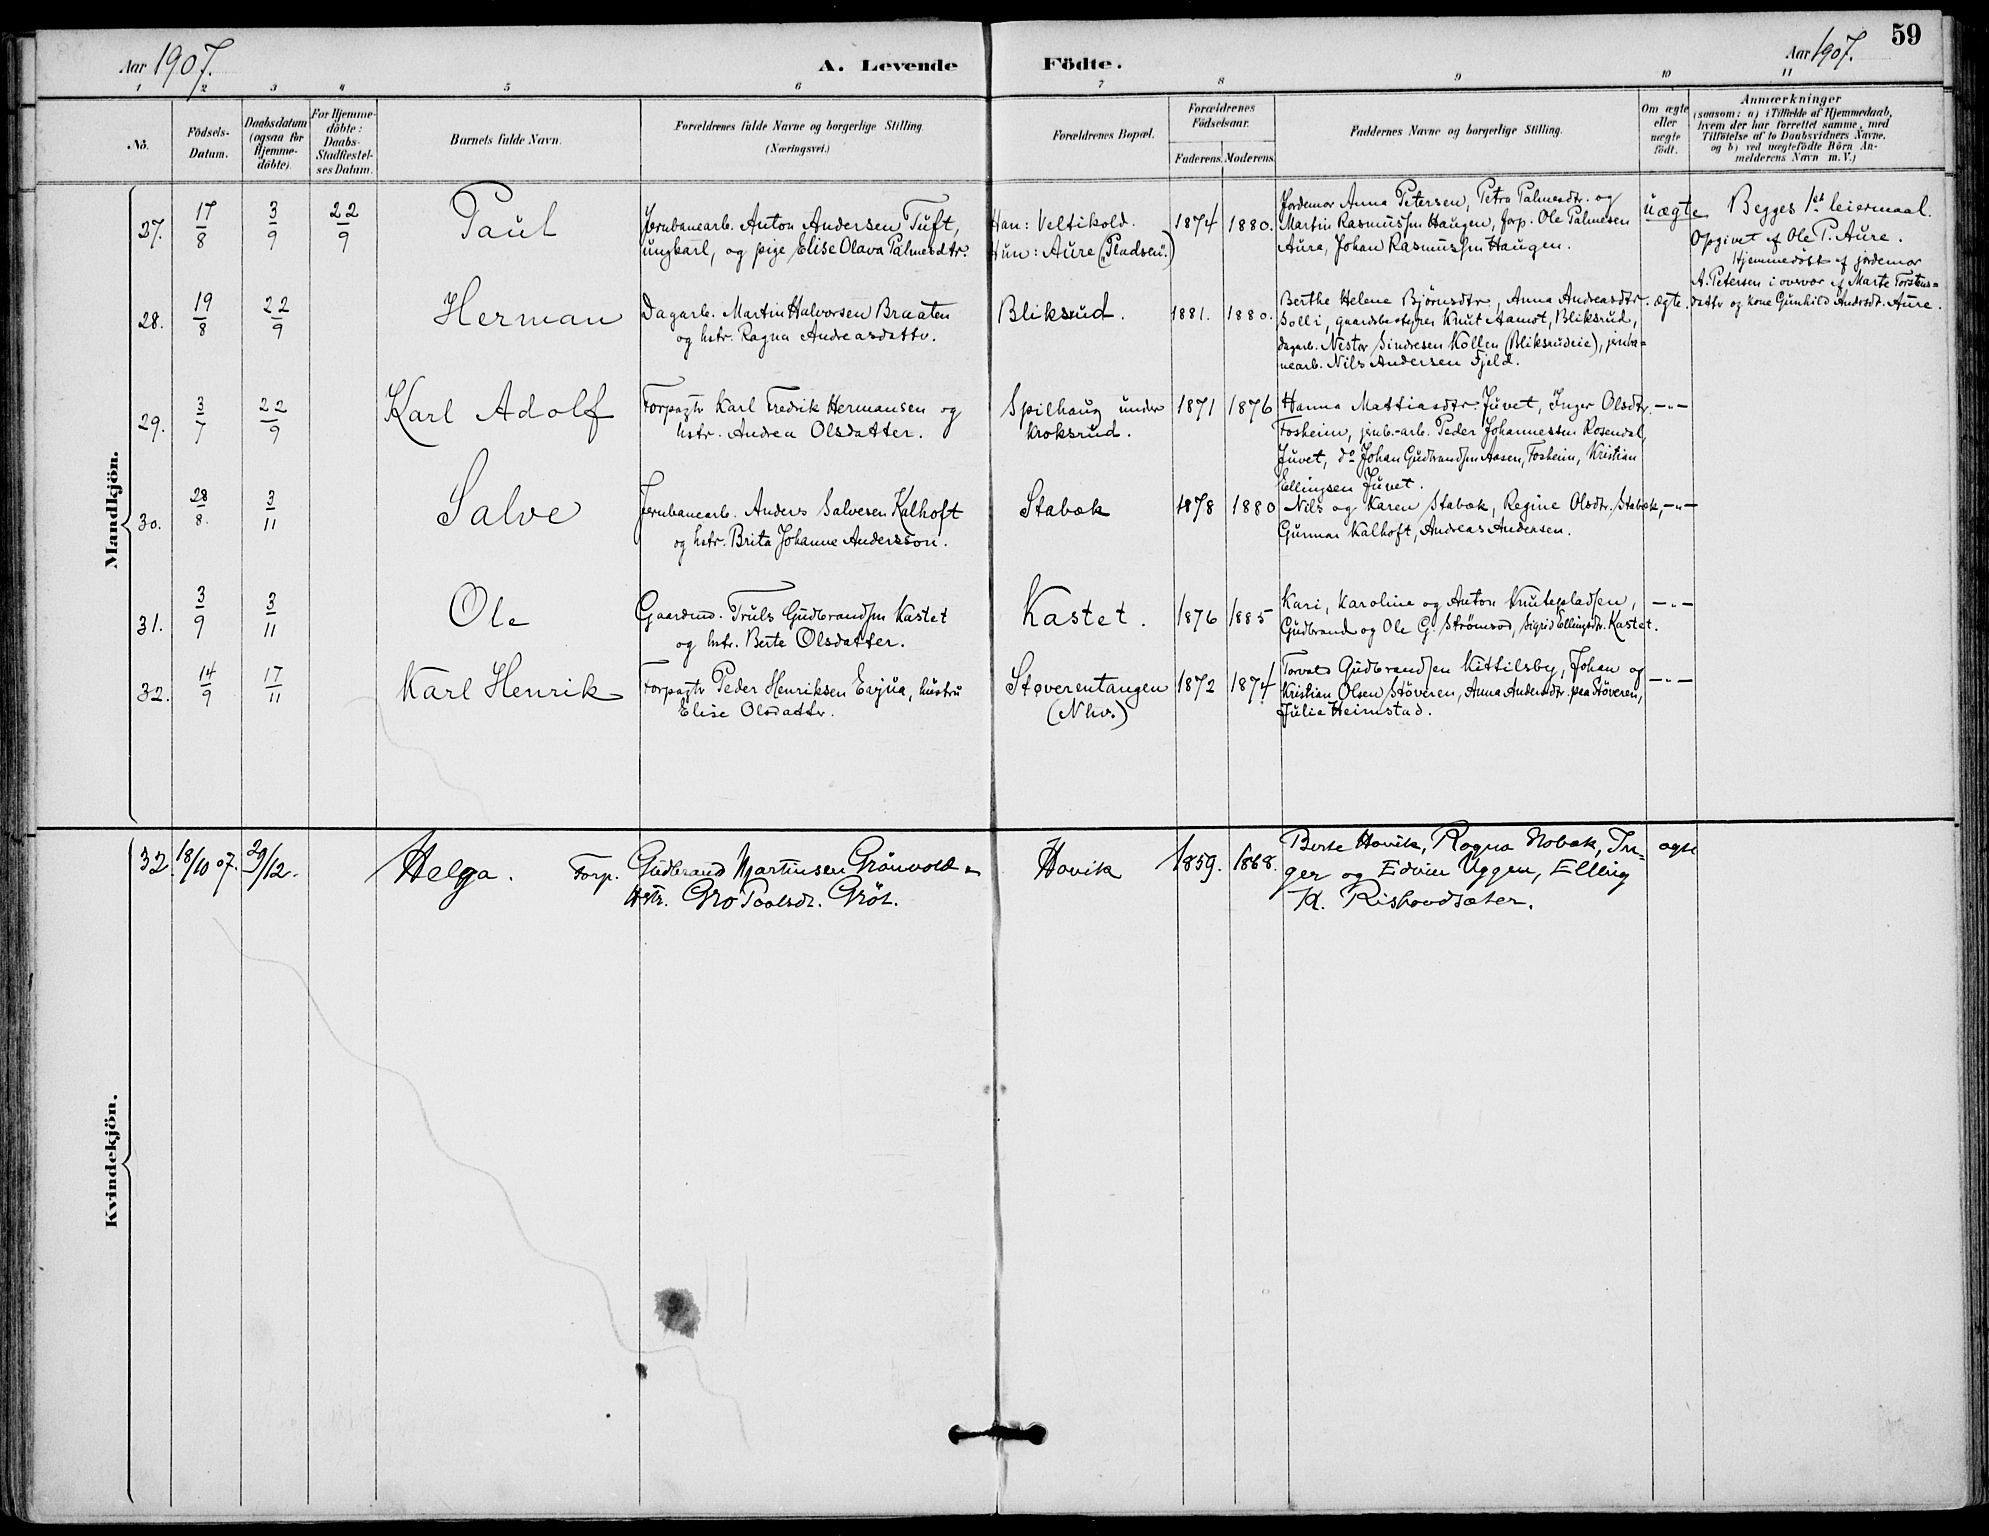 59
Aar 1907.
A. Levende Födte.
Aar 1907.
1 2 3 4 5 6 7 8 9 10 11
No.
Födsels-Datum.
Daabsdatum (ogsaa for Hjemme-döbte).
For Hjemme-döbte: Daabs-Stadfæstel-ses Datum.
Barnets fulde Navn.
Forældrenes fulde Navne og borgerlige Stilling.
(Næringsvei.)
Forældrenes Bopæl.
Forældrenes Födselsaar.
Faderens. Moderens.
Faddernes Navne og borgerlige Stilling.
Om ægte eller uægte födt.
Anmærkninger
(saasom: a) i Tilfælde af Hjemmedaab,
hvem der har forrettet samme, med
Tilföielse af to Daabsvidners Navne,
og b) ved uægtefödte Börn An-
melderens Navn m. V.)
Mandkjön.
27. 17/8 3/9 22/9 Paul
Jernbanearb. Anton Andersen Tuft,
ungkarl, og pige Elise Olava Palmesdtr.
Han: Veltikold.
Hun: Aure (Pladsen.)
1874 1880.
Jordemor Anna Petersen, Petra Palmesdtr. og
Martin Rasmussen Haugen, forp. Ole Palmesen
Aure, Johan Rasmussen Haugen.
uægte
Begges 1ste leiermaal.
Opgivet af Ole P. Aure.
Hjemmedöbt af jordemor
A. Petersen i overvær af Marte Torstens=
dattr og kone Gunhild Andersdt. Aure.
28. 19/8 22/9 Herman
Dagarb. Martin Halvorsen Braaten
og hstr. Ragna Andreasdattr.
Bliksrud.
1881. 1880.
Berthe Helene Björnsdtr, Anna Andreasdtr.
Solli, gaardsbestyrer Knut Aamot, Bliksrud,
dagarb. Nestor Sindresen Kollen (Bliksrudeie), jernba=
nearb. Nils Andersen Fjeld.
ægte.
29. 3/7 22/9 Karl Adolf
Forpagtr Karl Fredrik Hermansen og
hstr. Andrea Olsdatter.
Spilhaug under
Kroksrud.
1871 1876
Hanna Mattiasdtr. Juvet, Inger Olsdtr.
Fosheim, jernb.-arb. Peder Johannessen Rosendal,
Juvet, do Johan Gudbrandsen Aasen, Fosheim, Kristian
Ellingsen Juvet.
—„—
30. 28/8. 3/11 Salve
Jernbanearb. Anders Salvesen Kalhoft
og hstr. Brita Johanne Andersson.
Stabæk
1878 1880
Nils og Karen Stabæk, Regine Olsdtr. Stabæk,
Gunnar Kalhoft, Andreas Andersen.
—„—
31. 3/9 3/11 Ole
Gaardmd. Truls Gudbrandsen Kastet
og hstr. Berte Olsdatter.
Kastet.
1876 1885
Kari, Karoline og Anton Knutepladsen,
Gudbrand og Ole G. Strømsod, Sigrid Ellingsdtr. Kastet.
—„—
32. 14/9 17/11 Karl Henrik
Forpagtr Peder Henriksen Evjua, hustru
Elise Olsdattr.
Støverentangen
(Nhv.)
1872 1874
Torvald Gudbrandsen Kittilsby, Johan og
Kristian Olsen Støveren, Anna Andersdtr. paa Støveren,
Julia Heimstad.
—„—
Kvindekjön.
32 18/10 07. 29/12. Helga.
Forp. Gudbrand Martinsen Grönvold &
Hstr. Gro Paalsdr. Gröt.
Hovik
1859. 1868.
Berte Hovik, Ragna Nobæk, In-
ger og Edvin Uggen, Elling
H. Rishovdsæter.
ægte